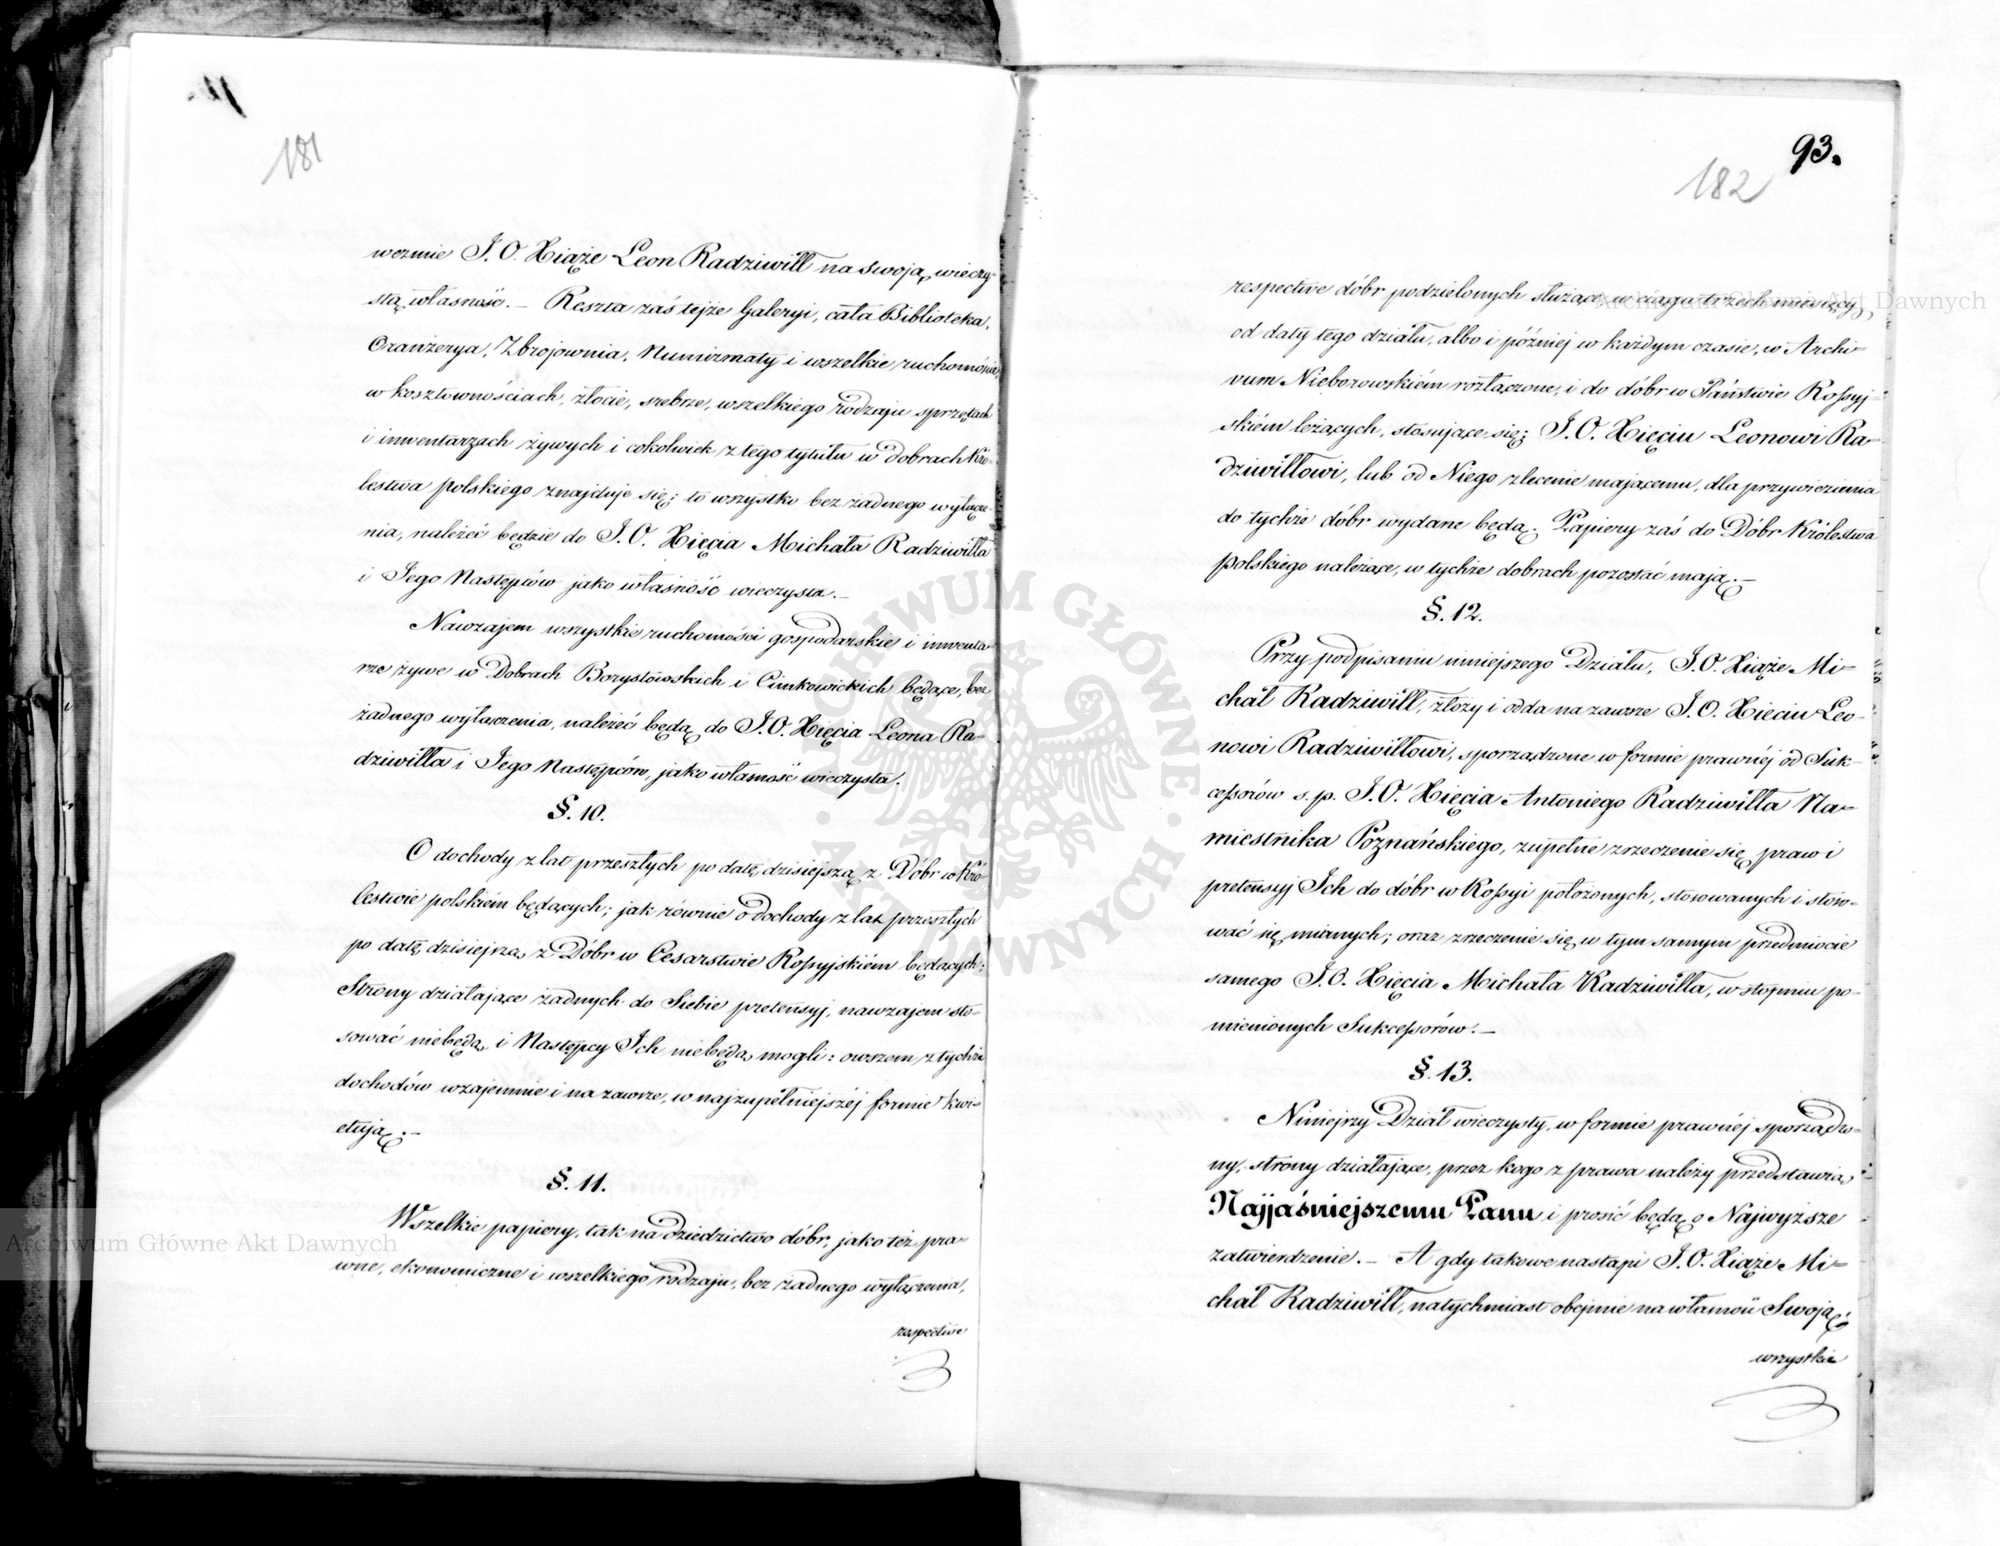 181
wezmie J. O. Xiąże Leon Radziwiłł na swoją wieczy-
stą własność. — Reszta zaś tejże Galeryi, cała Biblioteka,
Oranżerya, Zbrojownia, Numizmaty i wszelkie ruchomości,
w kosztownościach, złocie, srebrze, wszelkiego rodzaju sprzętach
i inwentarzach żywych i cokolwiek z tego tytułu w dobrach Kró-
lestwa polskiego znajduje się; to wszystko bez żadnego wyłącze-
nia, należeć będzie do J. O. Xięcia Michała Radziwiłła
i Jego Następców jako własność wieczysta. —
Nawzajem wszystkie ruchomości gospodarskie i inwenta-
rze żywe w Dobrach i Cimkowickich będące, bez
żadnego wyłączenia, należeć będą do J. O. Xięcia Leona Ra-
dziwiłła i Jego Następców, jako własność wieczysta.
§. 10.
O dochody z lat przeszłych po datę dzisiejszą z Dóbr w Kró-
lestwie polskiém będących; jak równie o dochody z lat przeszłych
po datę dzisiejszą z Dóbr w Cesarstwie Rossyjskiém będących;
Strony działające żadnych do Siebie pretensyj, nawzajem sto-
sować niebędą i Następcy Ich niebędą mogli: owszem z tychże
dochodów wzajemnie i na zawsze, w najzupełniejszéj formie kwi-
etują. —
§. 11.
Wszelkie papiery, tak na dziedzictwo dóbr, jako też pra-
wne, ekonomiczne i wszelkiego rodzaju, bez żadnego wyłączenia,
respective
93.
182
respective dóbr podzielonych służące w ciągu trzech miesięcy,
od daty tego działu, albo i później w każdym czasie, w Archi-
vum Nieborowskiém rozłączone, i do dóbr w Państwie Rossyj-
skiém leżących, stosujące się; J. O. Xięciu Leonowi Ra-
dziwiłłowi, lub od Niego zlecenie mającemu, dla przywiezienia
do tychże dóbr wydane będą. Papiery zaś do Dóbr Królestwa
polskiego należące, w tychże dobrach pozostać mają. —
§. 12.
Przy podpisaniu niniejszego Działu, J. O. Xiąże Mi-
chał Radziwiłł, złoży i odda na zawsze J. O. Xieciu Leo-
nowi Radziwiłłowi, sporządzone w formie prawnéj od Suk-
cessorów s. p. J. O. Xięcia Antoniego Radziwiłła Na-
miestnika Poznańskiego, zupełne zrzeczenie się praw i
pretensyj Ich do dóbr w Rossyi położonych, stosowanych i stoso-
wać się mianych; oraz zrzeczenie się w tym samym przedmiocie
samego J. O. Xięcia Michała Radziwiłła, w stopniu po-
mienionych Sukcessorów. —
§. 13.
Niniejszy Dział wieczysty, w formie prawnéj sporządzo-
ny, strony działające, przez kogo z prawa należy przedstawią
Najjaśniejszemu Panu i prosić będą o Najwyższe
zatwierdzenie. — A gdy takowe nastąpi J. O. Xiąże Mi-
chał Radziwiłł, natychmiast obejmie na własność Swoją
wszystkie
Archiwum Główne Akt Dawnych
Archiwum Główne Akt Dawnych
ARCHIWUM GŁÓWNE · AKT DAWNYCH ·